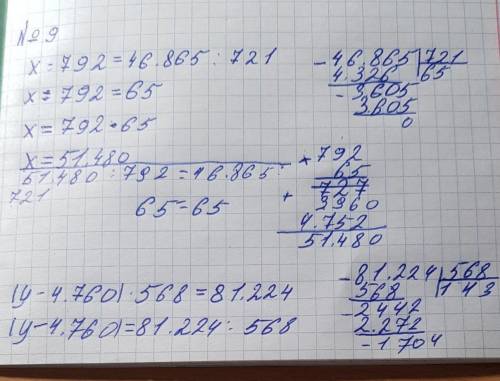 № 9
x : 792 = 46.865 : 721
x : 792 = 65
x = 792 · 65
x = 51.480
51.480 : 792 = 46.865 :
721
65 = 65
- 46.865 | 721
4.326 65
- 3.605
3.605
0
× 792
65
727
+ 3960
4.752
51.480
(y - 4.760) · 568 = 81.224
(y - 4.760) = 81.224 : 568
- 81.224 | 568
568 143
- 2442
2.272
- 1704